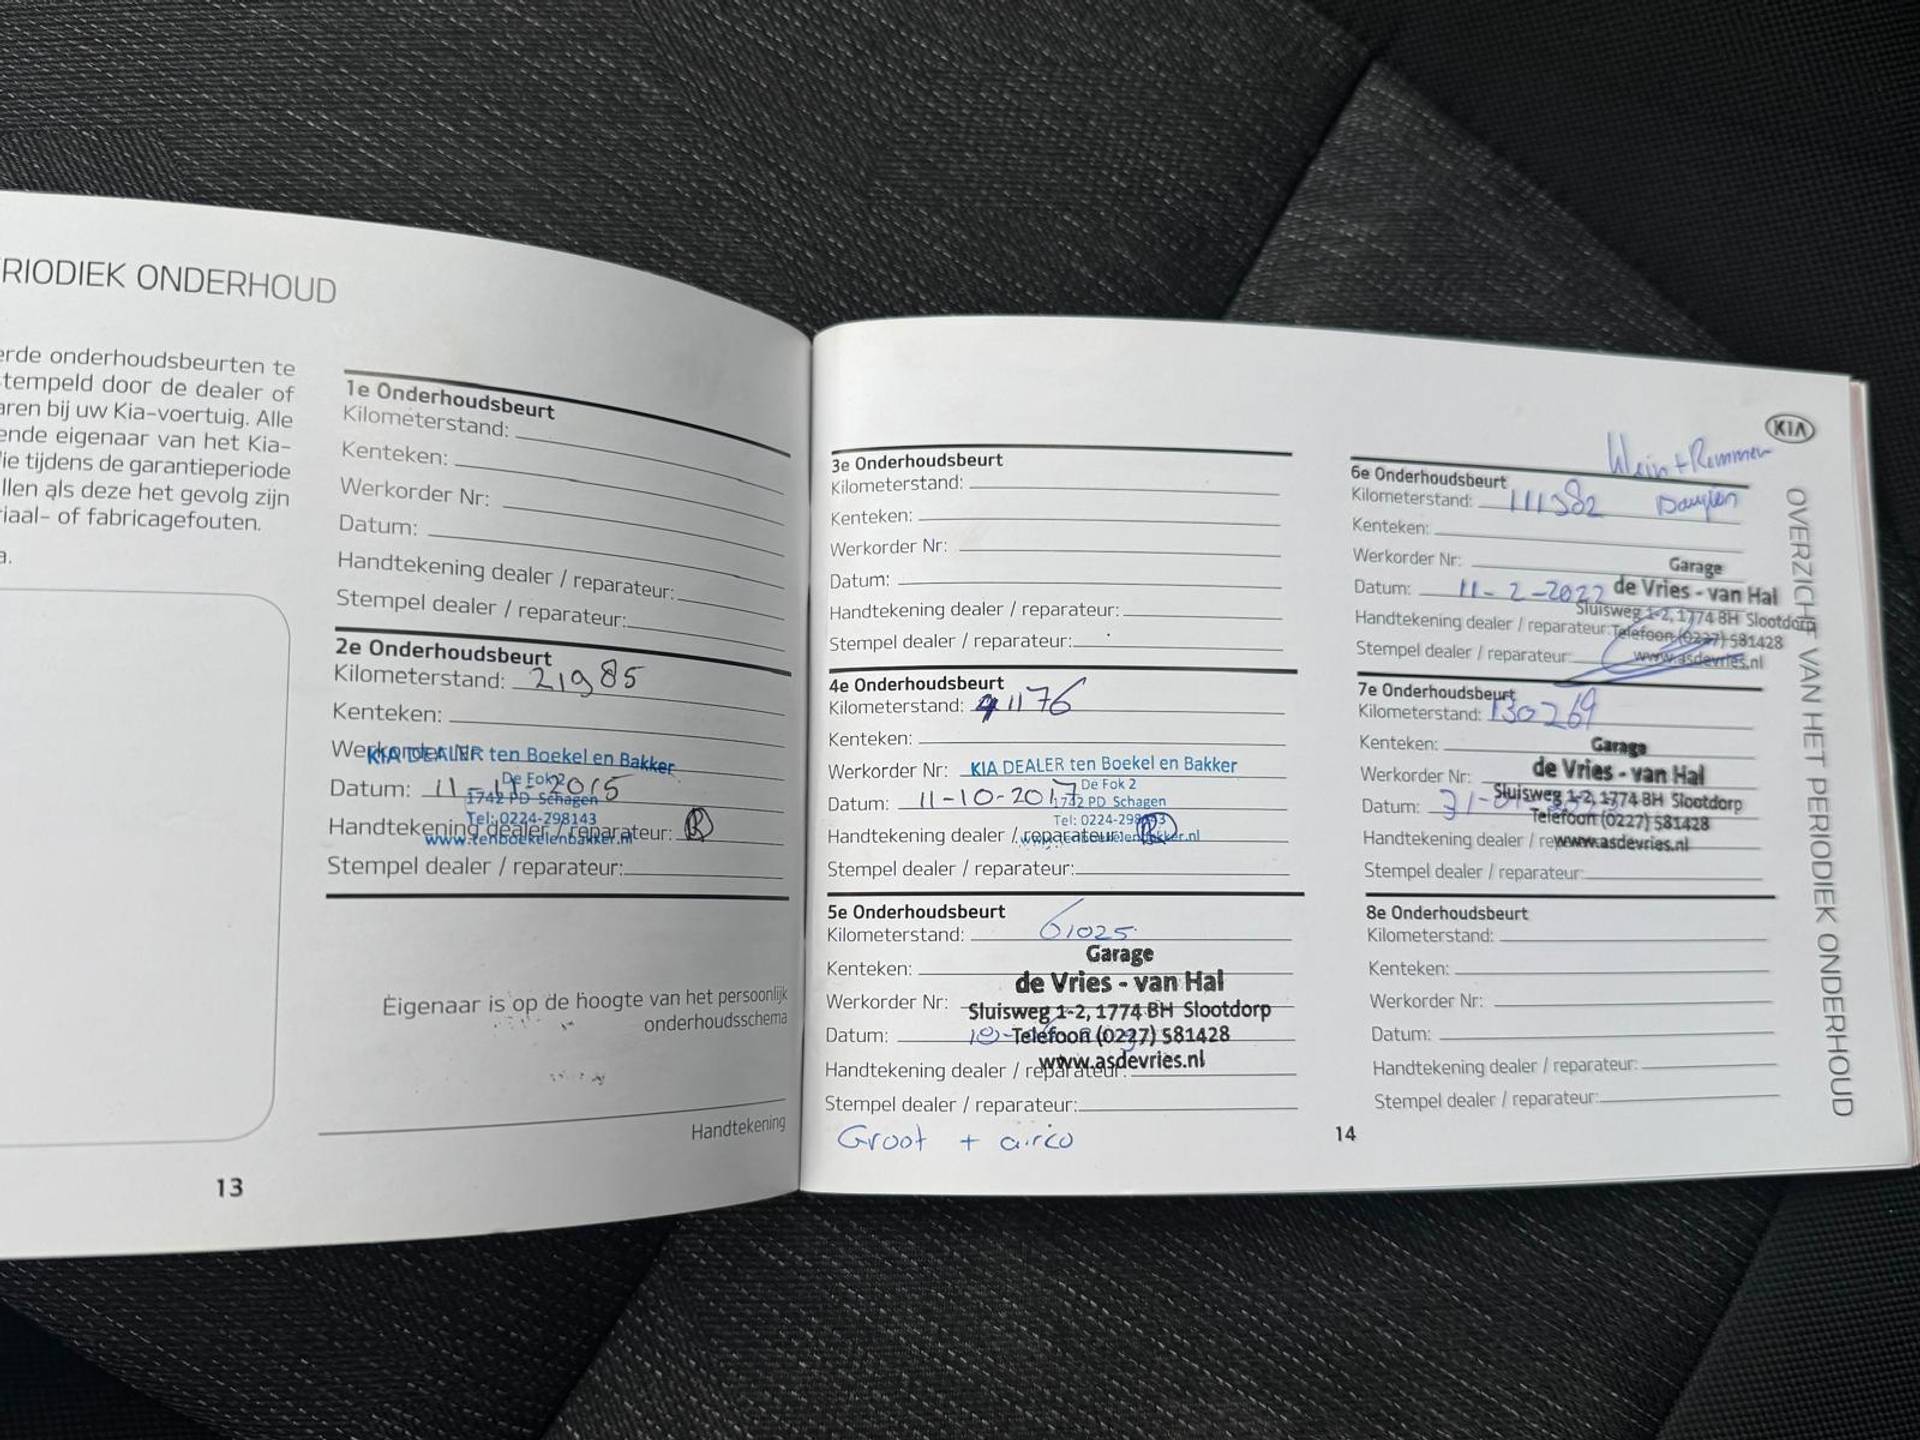 RIODIEK ONDERHOUD
erde onderhoudsbeurten te
tempeld door de dealer of
aren bij uw Kia-voertuig. Alle
ende eigenaar van het Kia-
ie tijdens de garantieperiode
llen als deze het gevolg zijn
iaal- of fabricagefouten.
a.
1e Onderhoudsbeurt
Kilometerstand:
Kenteken:
Werkorder Nr:
Datum:
Handtekening dealer / reparateur:
Stempel dealer / reparateur:
2e Onderhoudsbeurt
Kilometerstand: 21985
Kenteken:
Werkorder Nr:
KIA DEALER ten Boekel en Bakker
De Fok 2
Datum: 11-11-2015
1742 PD Schagen
Tel: 0224-298143
Handtekening dealer / reparateur:
www.tenboekelenbakker.nl
Stempel dealer / reparateur:
Eigenaar is op de hoogte van het persoonlijk
onderhoudsschema
Handtekening
13
3e Onderhoudsbeurt
Kilometerstand:
Kenteken:
Werkorder Nr:
Datum:
Handtekening dealer / reparateur:
Stempel dealer / reparateur:
4e Onderhoudsbeurt
Kilometerstand: 41176
Kenteken:
Werkorder Nr:
KIA DEALER ten Boekel en Bakker
De Fok 2
Datum: 11-10-2017
1742 PD Schagen
Tel: 0224-298143
Handtekening dealer / reparateur:
www.tenboekelenbakker.nl
Stempel dealer / reparateur:
5e Onderhoudsbeurt
Kilometerstand: 61025
Garage
Kenteken:
de Vries - van Hal
Werkorder Nr:
Sluisweg 1-2, 1774 BH Slootdorp
Datum:
Telefoon (0227) 581428
www.asdevries.nl
Handtekening dealer / reparateur:
Stempel dealer / reparateur:
Groot + airco
KIA
Klein + Remmen
6e Onderhoudsbeurt
Kilometerstand: 111382
Kenteken:
Werkorder Nr:
Garage
Datum: 11-2-2022
de Vries - van Hal
Sluisweg 1-2, 1774 BH Slootdorp
Handtekening dealer / reparateur:
Telefoon (0227) 581428
Stempel dealer / reparateur:
www.asdevries.nl
7e Onderhoudsbeurt
Kilometerstand: 130269
Kenteken:
Garage
de Vries - van Hal
Werkorder Nr:
Sluisweg 1-2, 1774 BH Slootdorp
Datum:
Telefoon (0227) 581428
Handtekening dealer /
www.asdevries.nl
Stempel dealer / reparateur:
8e Onderhoudsbeurt
Kilometerstand:
Kenteken:
Werkorder Nr:
Datum:
Handtekening dealer / reparateur:
Stempel dealer / reparateur:
14
OVERZICHT VAN HET PERIODIEK ONDERHOUD